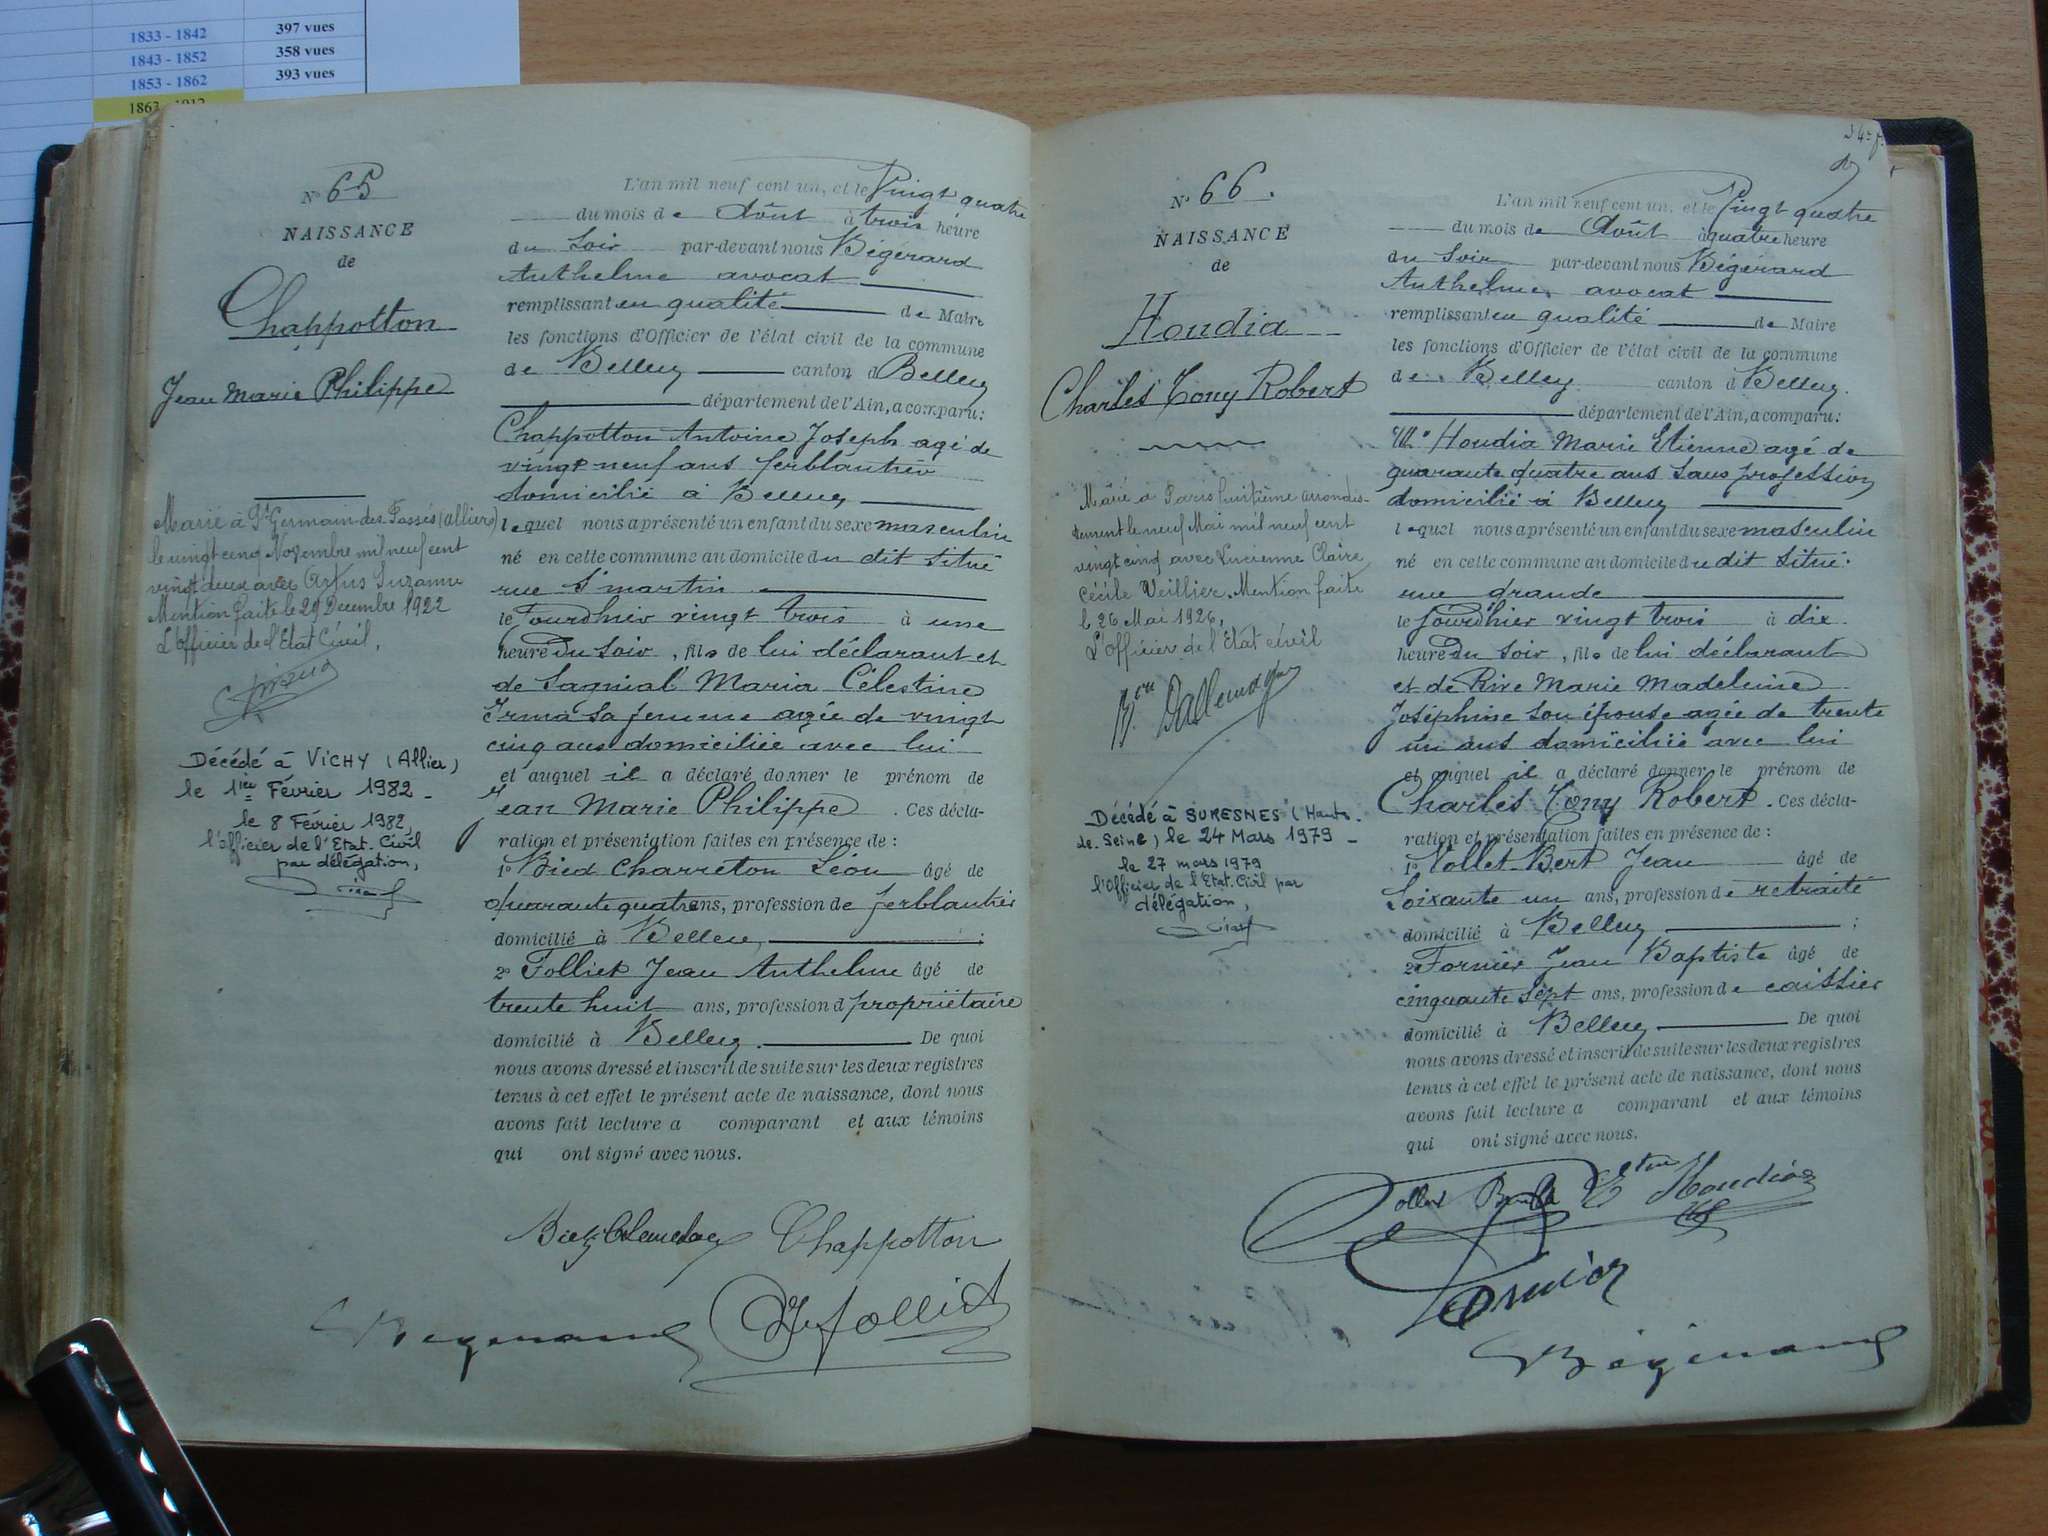 1833 - 1842 397 vues
1843 - 1852 358 vues
1853 - 1862 393 vues
1863 - 1912
N° 65
NAISSANCE
de
Chappotton
Jean Marie Philippe
Marié à St Germain-des-Fossés (Allier)
le vingt cinq Novembre mil neuf cent
vingt deux avec Artus Suzanne
Mention faite le 29 Décembre 1922
L'officier de l'Etat Civil,
Décédé à VICHY (Allier)
le 1ier Février 1982 -
le 8 Février 1982,
l'officier de l'Etat. Civil
par délégation,
L'an mil neuf cent un, et le Vingt quatre
du mois de Août à trois heure
du Soir par-devant nous Bégérard
Anthelme avocat
remplissant en qualité de Maire
les fonctions d'Officier de l'état civil de la commune
de Belley canton d Belley
département de l'Ain, a comparu:
Chappotton Antoine Joseph agé de
vingt neuf ans ferblantier
domicilié à Belley
lequel nous a présenté un enfant du sexe masculin
né en cette commune au domicile du dit situé
rue St martin
le jourdhier vingt trois à une
heure Du soir, fils de lui déclarant et
de Sagnial Maria Célestine
Irma sa femme agée de vingt
cinq ans domiciliée avec lui
et auquel il a déclaré donner le prénom de
Jean Marie Philippe. Ces décla-
ration et présentation faites en présence de:
1° Bied Charreton Léon âgé de
quarante quatre ans, profession de ferblantier
domicilié à Belley ;
2° Folliet Jean Anthelme âgé de
trente huit ans, profession d propriétaire
domicilié à Belley. De quoi
nous avons dressé et inscrit de suite sur les deux registres
tenus à cet effet le présent acte de naissance, dont nous
avons fait lecture a comparant et aux témoins
qui ont signé avec nous.
Chappotton
Bégérard Folliet
N° 66.
NAISSANCE
de
Houdia
Charles Tony Robert
Marié à Paris huitième arrondis-
sement le neuf Mai mil neuf cent
vingt cinq avec Lucienne Claire
Cécile Veillier. Mention faite
le 26 Mai 1926,
L'officier de l'Etat civil
Dallemagne
Décédé à SURESNES (Hauts-
de-Seine) le 24 Mars 1979 -
le 27 mars 1979
l'Officier de l'Etat. Civil par
délégation,
L'an mil neuf cent un, et le Vingt quatre
du mois de Août à quatre heure
du Soir par-devant nous Bégérard
Anthelme avocat
remplissant en qualité de Maire
les fonctions d'Officier de l'état civil de la commune
de Belley canton d Belley.
département de l'Ain, a comparu:
Mr Houdia Marie Etienne agé de
quarante quatre ans sans profession
domicilié à Belley
lequel nous a présenté un enfant du sexe masculin
né en cette commune au domicile du dit situé
rue grande
le jourdhier vingt trois à dix
heure Du soir, fils de lui déclarant
et de Rive Marie Madeleine
Joséphine son épouse agée de trente
un ans domiciliée avec lui
et auquel il a déclaré donner le prénom de
Charles Tony Robert. Ces décla-
ration et présentation faites en présence de:
1° Vollet Bert Jean âgé de
Soixante un ans, profession de retraité
domicilié à Belley ;
2° Fornier Jean Baptiste âgé de
cinquante sept ans, profession de caissier
domicilié à Belley De quoi
nous avons dressé et inscrit de suite sur les deux registres
tenus à cet effet le présent acte de naissance, dont nous
avons fait lecture a comparant et aux témoins
qui ont signé avec nous.
Houdia
Fornier
Bégérard